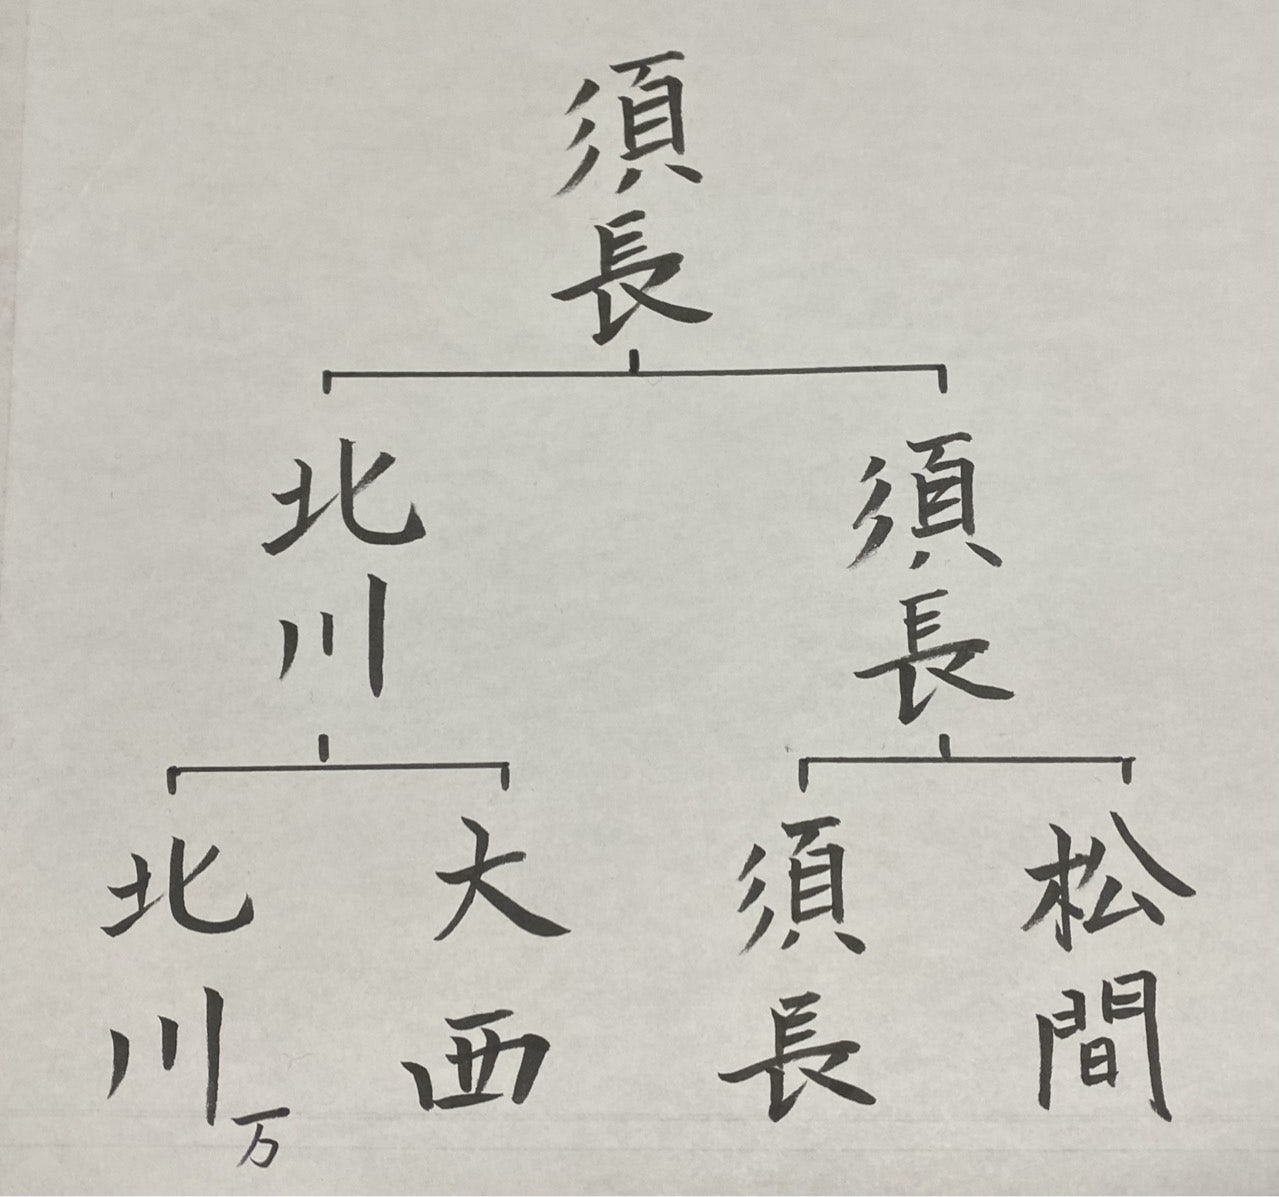 須長
北川
須長
北川万
大西
須長
松間